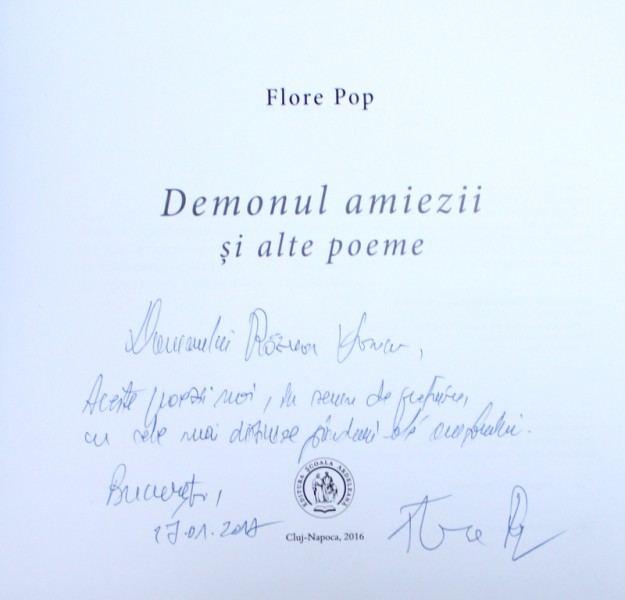 Flore Pop
Demonul amiezii
și alte poeme
Domnului Răzvan
Aceste poezii noi, în semn de prețuire,
cu cele mai distinse gânduri ale autorului.
București,
27.01.2017
EDITURA ȘCOALA ARDELEANĂ
Cluj-Napoca, 2016
Flore Pop